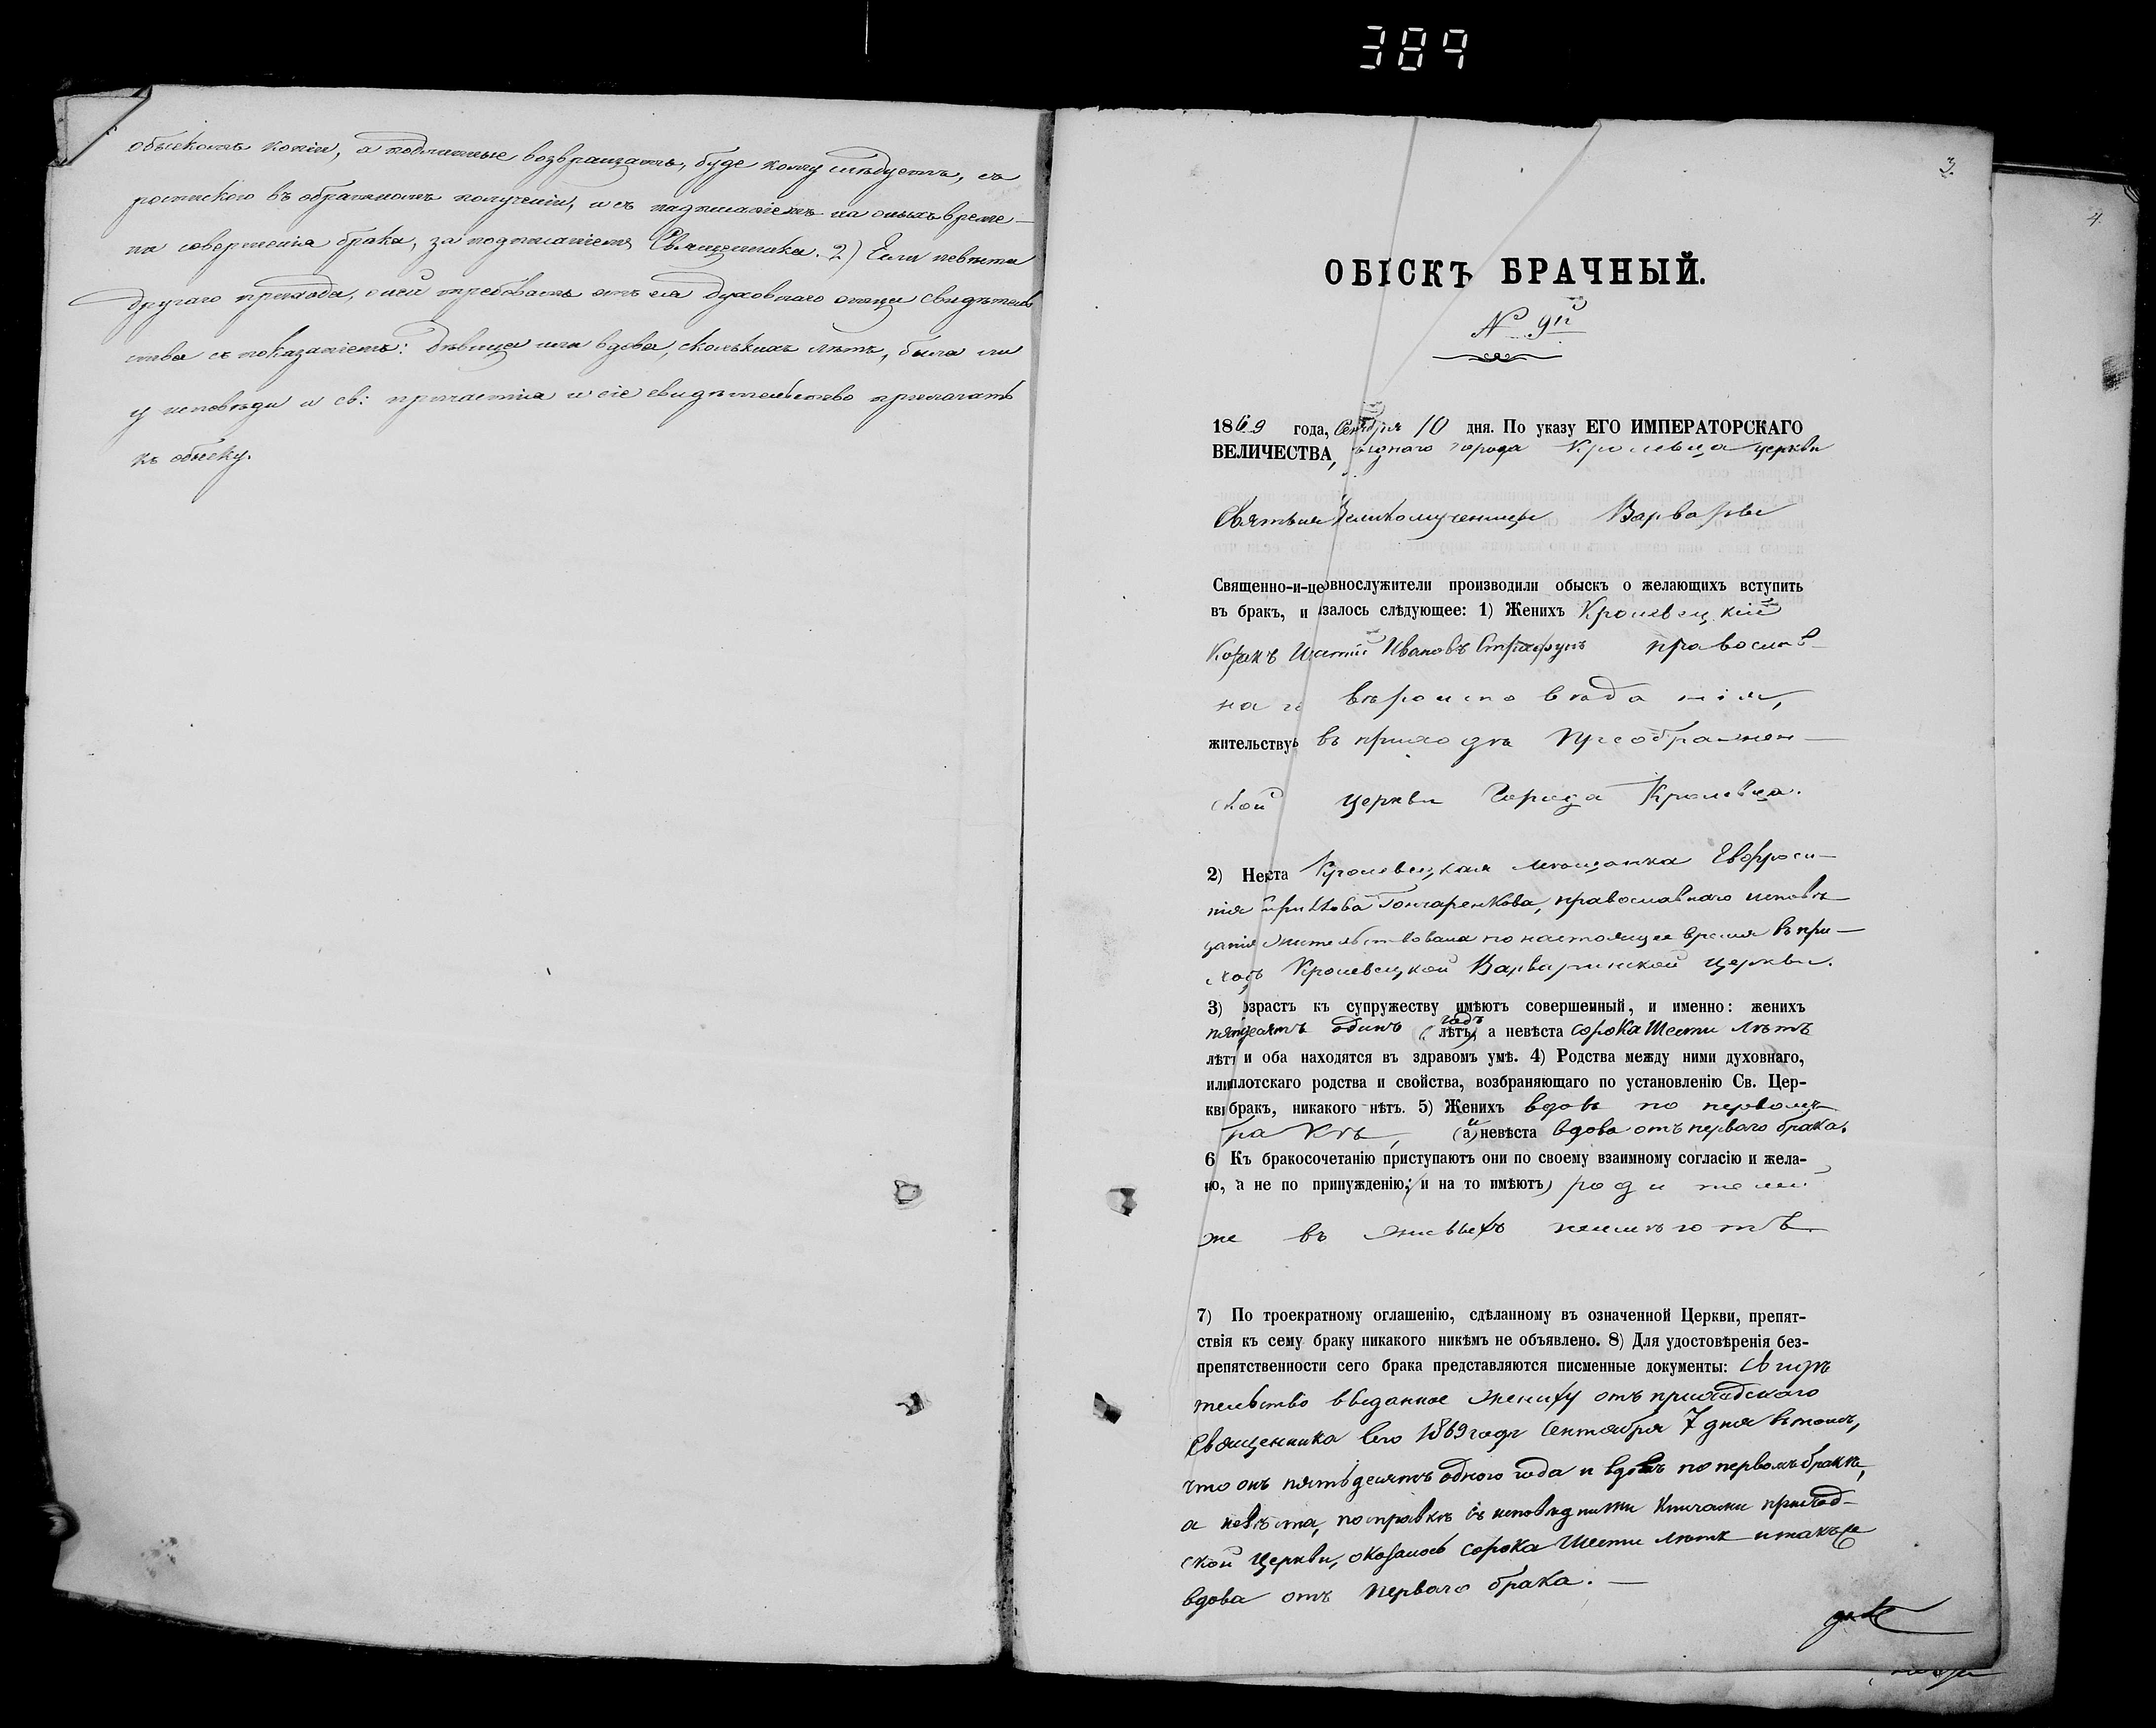 389
обыскомъ копіи, а подлинные возвращать, буде кому слѣдуетъ, съ
роспискою въ обратномъ полученіи, и съ надписаніемъ на оныхъ време-
ни совершенія брака, за подписаніемъ Священника. 2) Если невѣста
другаго прихода, о ней требовать отъ ея духовнаго отца свидѣтель
ства съ показаніемъ: дѣвица или вдова, сколькихъ лѣтъ, была ли
у исповѣди и св: причастія и сіе свидѣтельство прилагать
къ обыску.
3.
4.
ОБІСКЪ БРАЧНЫЙ.
№ 9й
1869 года, Сентября 10 дня. По указу ЕГО ИМПЕРАТОРСКАГО
ВЕЛИЧЕСТВА, ѣзднаго города Кролевца церкви
Святыя Великомученицы Варвары
Священно-и-церковнослужители производили обыскъ о желающихъ вступить
въ бракъ, и залось слѣдующее: 1) Женихъ Кролевецкій
Козакъ Ивановъ православ-
наго вѣроисповѣданія,
жительствуе въ приходѣ Преображен-
ской церкви города Кролевца.
2) Неста Кролевецкая мѣщанка Евфроси-
нія Гончаренкова, православнаго исповѣ-
данія жительствовала по настоящее время въ при-
ходѣ Кролевецкой Варваринской церкви.
3) озрастъ къ супружеству имѣютъ совершенный, и именно: женихъ
пятдесятъ одинъ годъ (лѣтъ), а невѣста сорока шести лѣтъ
лѣтъ и оба находятся въ здравомъ умѣ. 4) Родства между ними духовнаго,
или плотскаго родства и свойства, возбраняющаго по установленію Св. Цер-
кви бракъ, никакого нѣтъ. 5) Женихъ вдовъ по первомъ
бракѣ, (а) и невѣста вдова отъ перваго брака.
6 Къ бракосочетанію приступаютъ они по своему взаимному согласію и жела-
ію, а не по принужденію; (и на то имѣютъ) родителей
же въ живыхъ неимѣютъ
7) По троекратному оглашенію, сдѣланному въ означенной Церкви, препят-
ствія къ сему браку никакого никѣмъ не объявлено. 8) Для удостовѣренія без-
препятственности сего брака представляются писменные документы: свидѣ
тельство выданное жениху отъ приходскаго
Священника сего 1869 года Сентября 7 дня въ томъ,
что онъ пятьдесятъ одного года и вдовъ по первомъ бракѣ,
а невѣста, по справкѣ съ исповѣдными книгами приход-
ской церкви, оказалось сорока шести лѣтъ и такъ же
вдова отъ перваго брака. —